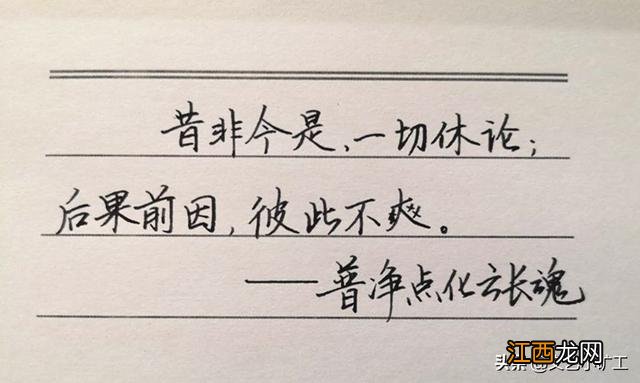 昔非今是、一切休论;
后果前因,彼此不爽。
——普净点化云长魂
江西龙网
头条@文艺小矿工